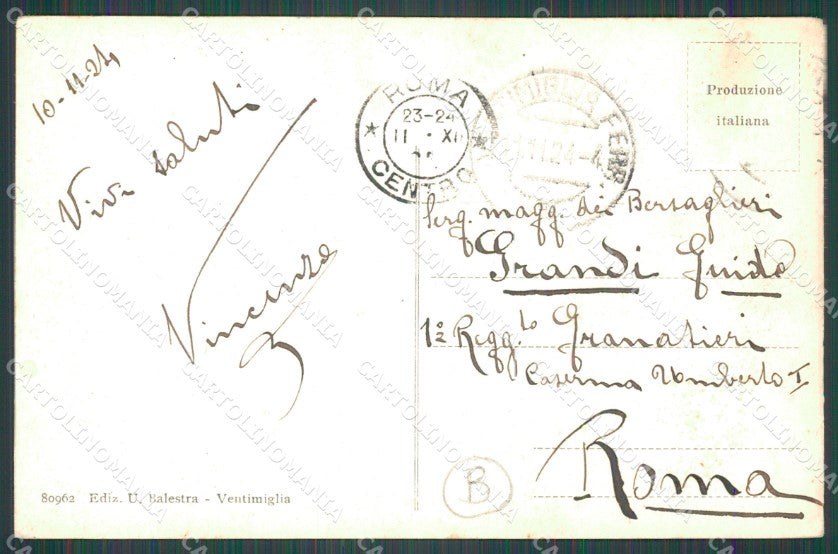 10-11-24
Vivi saluti
Vincenzo
80962 Ediz. U. Balestra - Ventimiglia
ROMA
23-24
11 XI
CENTRO
FERR
11.24
Produzione
italiana
Serg. magg. dei Bersaglieri
Grandi Guido
1º Regg.to Granatieri
Caserma Umberto I
Roma
B
CARTOLINOMANIA